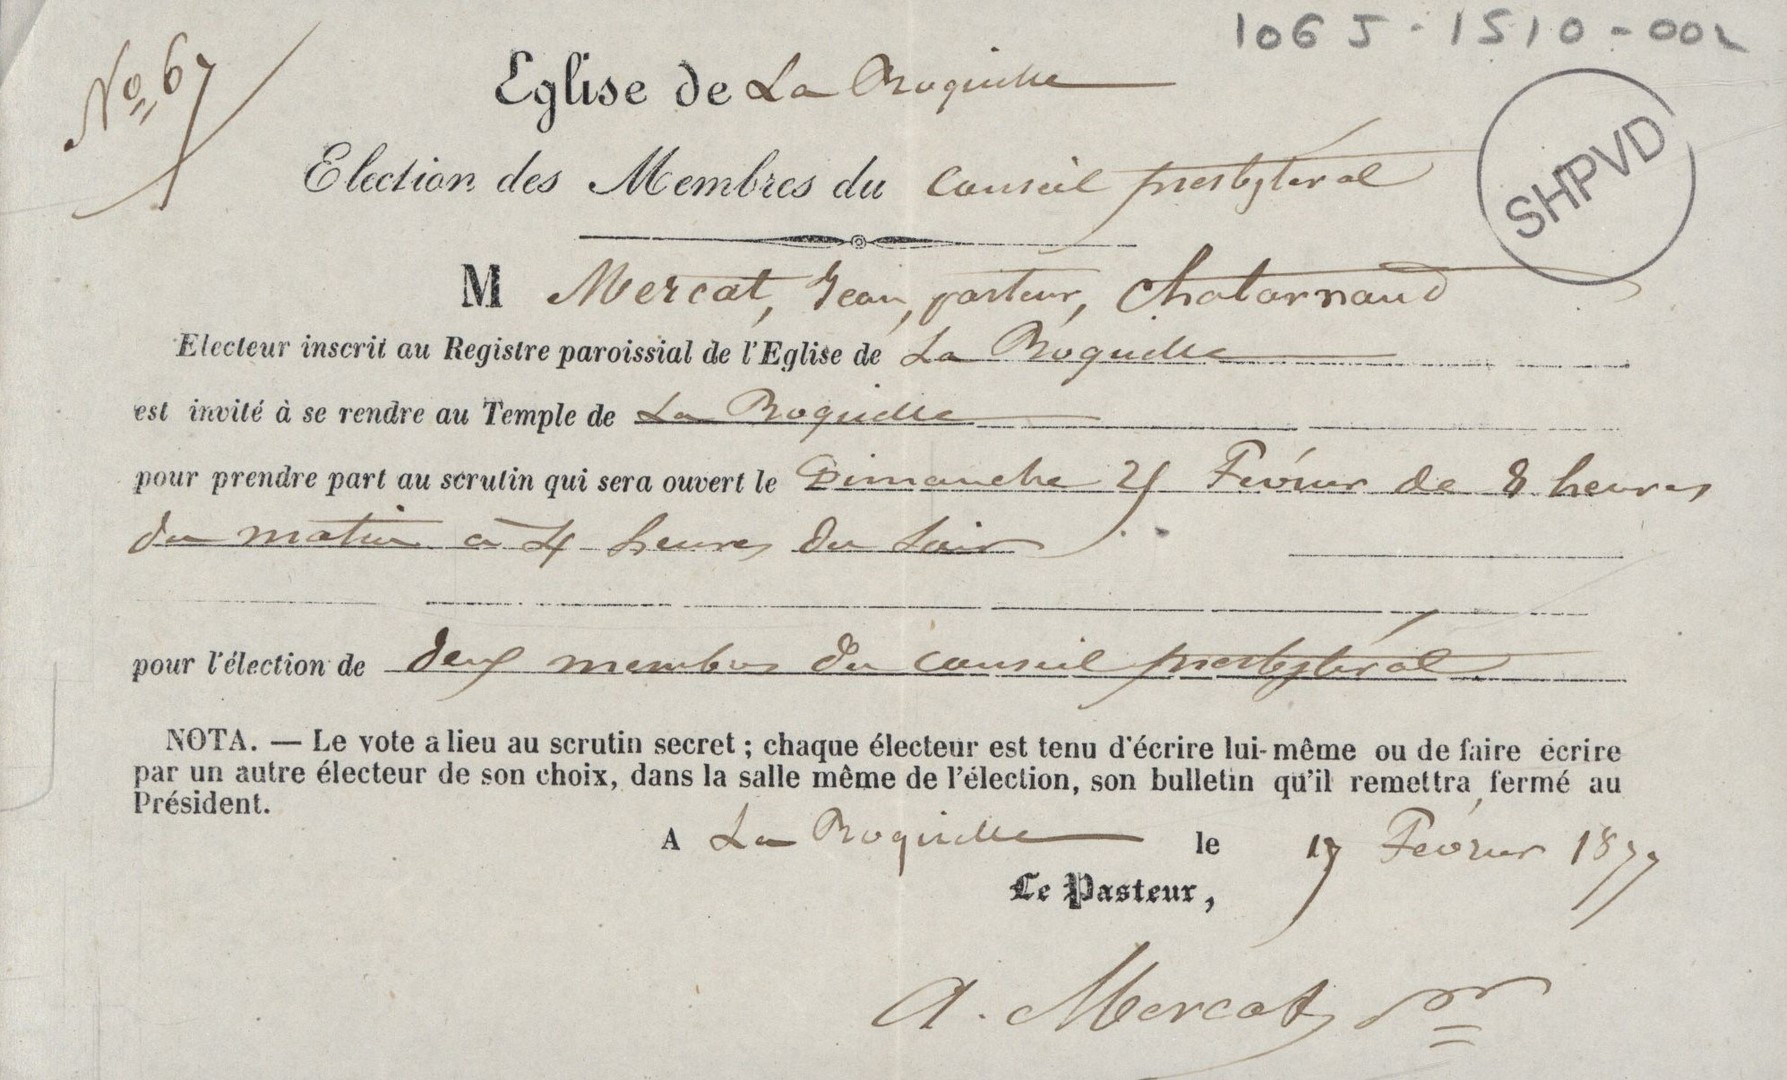 1065-1510-002
No 67
Eglise de La Roquille
SHPVD
Election des Membres du Conseil presbytéral
M Mercat, Jean, pasteur, Chatarnaud
Electeur inscrit au Registre paroissial de l'Eglise de La Roquille
est invité à se rendre au Temple de La Roquille
pour prendre part au scrutin qui sera ouvert le Dimanche 25 Février de 8 heures
du matin à 4 heures du soir
pour l'élection de deux membres du Conseil presbytéral.
NOTA. — Le vote a lieu au scrutin secret ; chaque électeur est tenu d'écrire lui-même ou de faire écrire
par un autre électeur de son choix, dans la salle même de l'élection, son bulletin qu'il remettra fermé au
Président.
A La Roquille le 17 Février 1877
Le Pasteur,
A. Mercat, pr